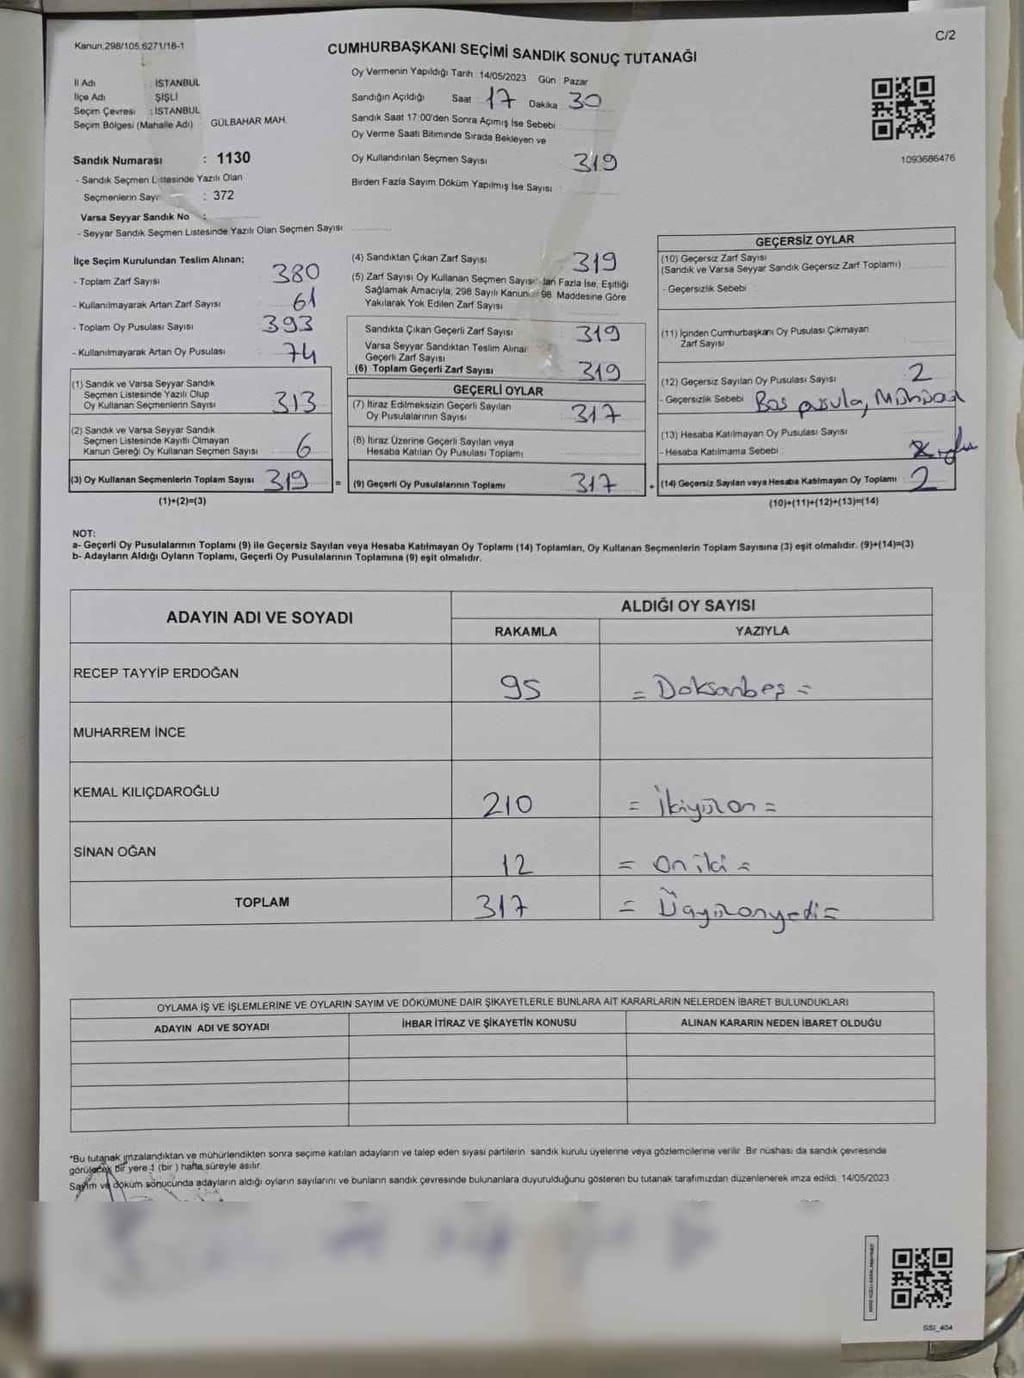 Kanun.298/105.6271/16-1
C/2
CUMHURBAŞKANI SEÇİMİ SANDIK SONUÇ TUTANAĞI
İl Adı : İSTANBUL
İlçe Adı : ŞİŞLİ
Seçim Çevresi : İSTANBUL
Seçim Bölgesi (Mahalle Adı) GÜLBAHAR MAH.
Sandık Numarası : 1130
- Sandık Seçmen Listesinde Yazılı Olan
Seçmenlerin Sayı : 372
Varsa Seyyar Sandık No :
- Seyyar Sandık Seçmen Listesinde Yazılı Olan Seçmen Sayısı
Oy Vermenin Yapıldığı Tarih 14/05/2023 Gün Pazar
Sandığın Açıldığı Saat 17 Dakika 30
Sandık Saat 17:00'den Sonra Açımış İse Sebebi
Oy Verme Saati Bitiminde Sırada Bekleyen ve
Oy Kullandırılan Seçmen Sayısı 319
Birden Fazla Sayım Döküm Yapılmış İse Sayısı
1093686476
İlçe Seçim Kurulundan Teslim Alınan:
- Toplam Zarf Sayısı 380
- Kullanılmayarak Artan Zarf Sayısı 61
- Toplam Oy Pusulası Sayısı 393
- Kullanılmayarak Artan Oy Pusulası 74
(1) Sandık ve Varsa Seyyar Sandık
Seçmen Listesinde Yazılı Olup
Oy Kullanan Seçmenlerin Sayısı 313
(2) Sandık ve Varsa Seyyar Sandık
Seçmen Listesinde Kayıtlı Olmayan
Kanun Gereği Oy Kullanan Seçmen Sayısı 6
(3) Oy Kullanan Seçmenlerin Toplam Sayısı 319 =
(1)+(2)=(3)
(4) Sandıktan Çıkan Zarf Sayısı 319
(5) Zarf Sayısı Oy Kullanan Seçmen Sayısından Fazla İse, Eşitliği
Sağlamak Amacıyla, 298 Sayılı Kanun 98 Maddesine Göre
Yakılarak Yok Edilen Zarf Sayısı
Sandıkta Çıkan Geçerli Zarf Sayısı 319
Varsa Seyyar Sandıktan Teslim Alınan
Geçerli Zarf Sayısı
(6) Toplam Geçerli Zarf Sayısı 319
GEÇERLİ OYLAR
(7) İtiraz Edilmeksizin Geçerli Sayılan
Oy Pusulalarının Sayısı 317
(8) İtiraz Üzerine Geçerli Sayılan veya
Hesaba Katılan Oy Pusulası Toplamı
(9) Geçerli Oy Pusulalarının Toplamı 317 +
GEÇERSİZ OYLAR
(10) Geçersiz Zarf Sayısı
(Sandık ve Varsa Seyyar Sandık Geçersiz Zarf Toplamı)
- Geçersizlik Sebebi
(11) İçinden Cumhurbaşkanı Oy Pusulası Çıkmayan
Zarf Sayısı
(12) Geçersiz Sayılan Oy Pusulası Sayısı 2
- Geçersizlik Sebebi Boş pusula,
(13) Hesaba Katılmayan Oy Pusulası Sayısı
- Hesaba Katılmama Sebebi
(14) Geçersiz Sayılan veya Hesaba Katılmayan Oy Toplamı 2
(10)+(11)+(12)+(13)=(14)
NOT:
a- Geçerli Oy Pusulalarının Toplamı (9) ile Geçersiz Sayılan veya Hesaba Katılmayan Oy Toplamı (14) Toplamları, Oy Kullanan Seçmenlerin Toplam Sayısına (3) eşit olmalıdır. (9)+(14)=(3)
b- Adayların Aldığı Oyların Toplamı, Geçerli Oy Pusulalarının Toplamına (9) eşit olmalıdır.
ADAYIN ADI VE SOYADI
ALDIĞI OY SAYISI
RAKAMLA YAZIYLA
RECEP TAYYİP ERDOĞAN 95 = Doksanbeş =
MUHARREM İNCE
KEMAL KILIÇDAROĞLU 210 = İkiyüzon =
SİNAN OĞAN 12 = on iki =
TOPLAM 317 = Üçyüzonyedi =
OYLAMA İŞ VE İŞLEMLERİNE VE OYLARIN SAYIM VE DÖKÜMÜNE DAİR ŞİKAYETLERLE BUNLARA AİT KARARLARIN NELERDEN İBARET BULUNDUKLARI
ADAYIN ADI VE SOYADI İHBAR İTİRAZ VE ŞİKAYETİN KONUSU ALINAN KARARIN NEDEN İBARET OLDUĞU
*Bu tutanak imzalandıktan ve mühürlendikten sonra seçime katılan adayların ve talep eden siyasi partilerin sandık kurulu üyelerine veya gözlemcilerine verilir. Bir nüshası da sandık çevresinde
görülecek bir yere 1 (bir ) hafta süreyle asılır.
Sayım ve döküm sonucunda adayların aldığı oyların sayılarını ve bunların sandık çevresinde bulunanlara duyurulduğunu gösteren bu tutanak tarafımızdan düzenlenerek imza edildi. 14/05/2023
GSI_404